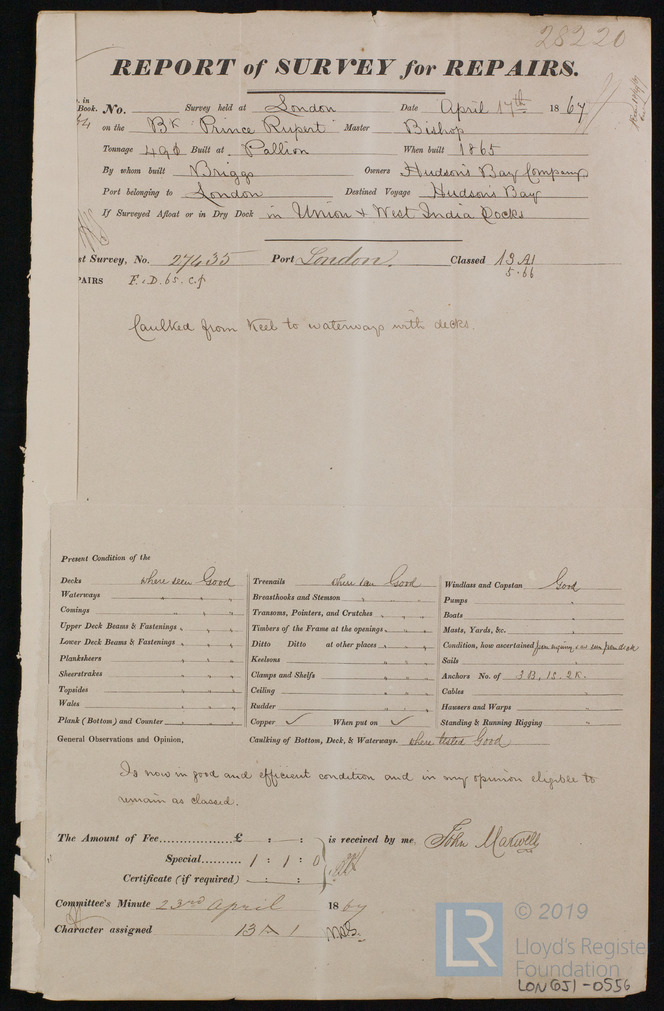 28220
REPORT of SURVEY for REPAIRS.
No. Survey held at London Date April 17th 1867
on the Bk Prince Rupert Master Bishop
Tonnage 490 Built at Pallion When built 1865
By whom built Briggs Owners Hudson's Bay Company
Port belonging to London Destined Voyage Hudson's Bay
If Surveyed Afloat or in Dry Dock in Union & West India Docks
st Survey, No. 27435 Port London. Classed 13 A1
5.66
PAIRS F.&D. 65. C.f
Caulked from Keel to waterways with decks.
Present Condition of the
Decks where seen Good
Waterways " " "
Comings " " "
Upper Deck Beams & Fastenings " " "
Lower Deck Beams & Fastenings " " "
Planksheers " " "
Sheerstrakes " " "
Topsides " " "
Wales " " "
Plank (Bottom) and Counter " " "
General Observations and Opinion.
Treenails where seen Good
Breasthooks and Stemson " " "
Transoms, Pointers, and Crutches " " "
Timbers of the Frame at the openings " " "
Ditto Ditto at other places " " "
Keelsons " " "
Clamps and Shelfs " " "
Ceiling " " "
Rudder " " "
Copper ✓ When put on ✓
Caulking of Bottom, Deck, & Waterways. where tested Good
Windlass and Capstan Good
Pumps "
Boats "
Masts, Yards, &c. "
Condition, how ascertained from enquiry and seen from deck
Sails "
Anchors No. of 3B, 1S. 2K.
Cables "
Hausers and Warps "
Standing & Running Rigging "
Is now in good and efficient condition and in my opinion eligible to
remain as classed.
The Amount of Fee £ : : is received by me, John Maxwell
Special 1 : 1 : 0
Certificate (if required) : :
Committee's Minute 23rd April 1867
Character assigned 13 A 1
LR © 2019
Lloyd's Register
Foundation
LONGJ1-0556